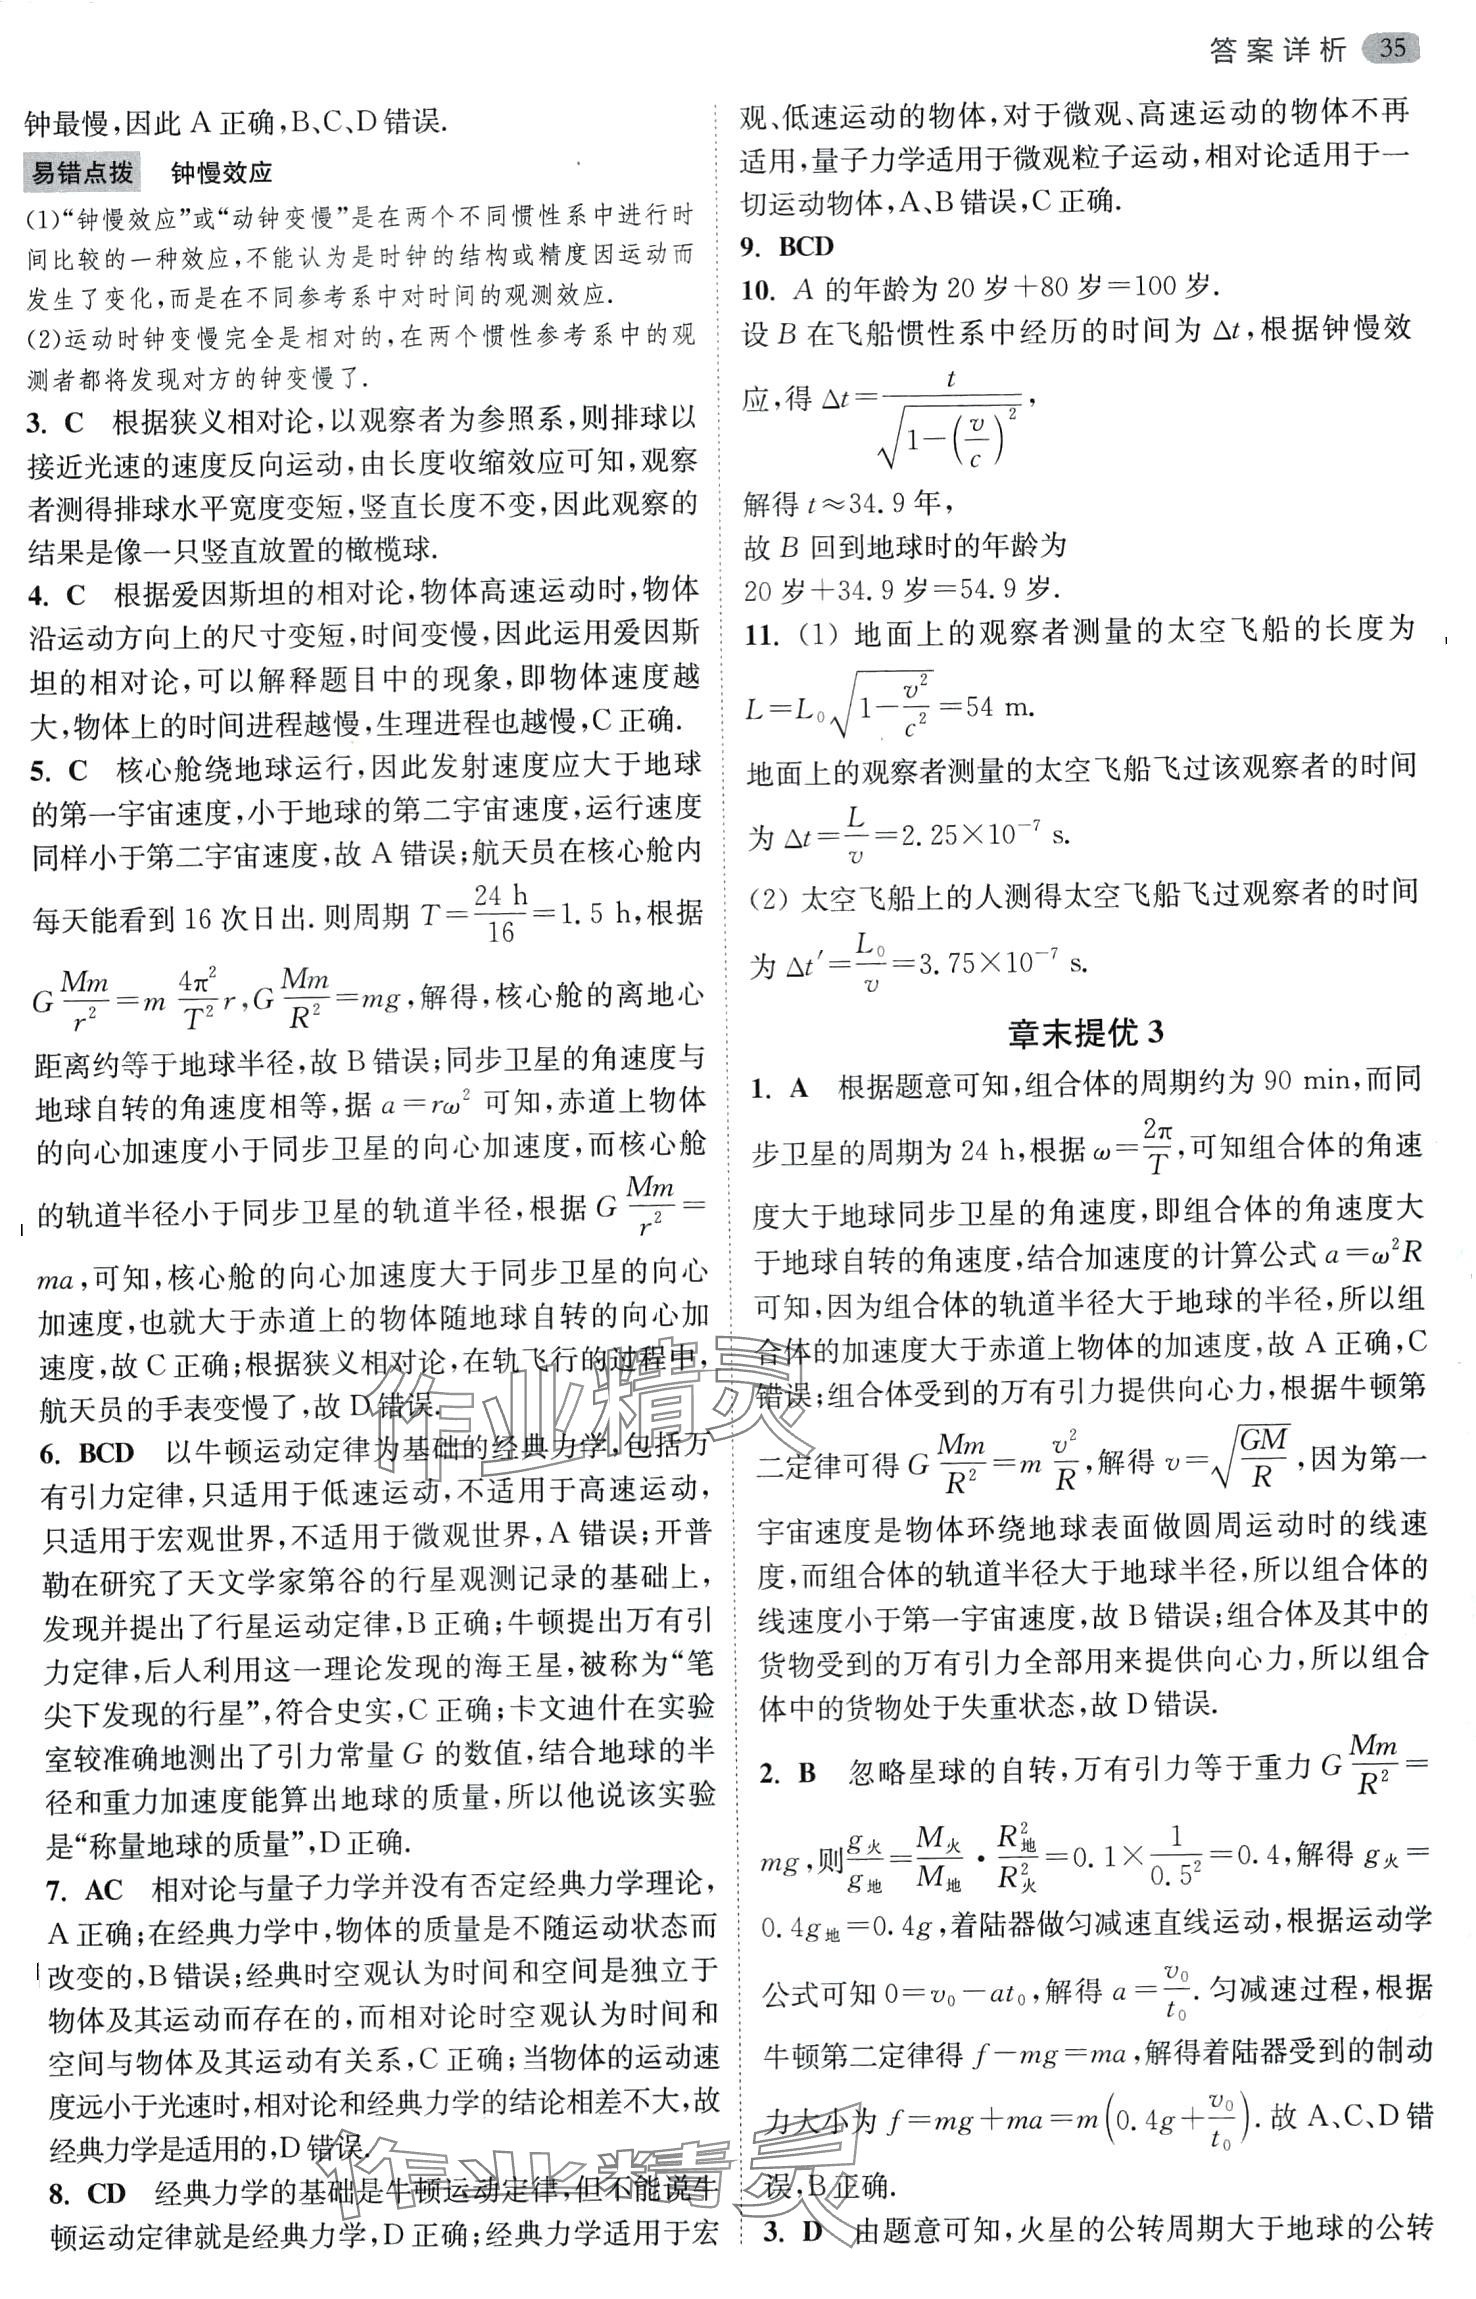 答案详析 35
钟最慢,因此 A 正确,B、C、D 错误.
易错点拨 钟慢效应
(1)“钟慢效应”或“动钟变慢”是在两个不同惯性系中进行时
间比较的一种效应,不能认为是时钟的结构或精度因运动而
发生了变化,而是在不同参考系中对时间的观测效应.
(2)运动时钟变慢完全是相对的,在两个惯性参考系中的观
测者都将发现对方的钟变慢了.
3. C 根据狭义相对论,以观察者为参照系,则排球以
接近光速的速度反向运动,由长度收缩效应可知,观察
者测得排球水平宽度变短,竖直长度不变,因此观察的
结果是像一只竖直放置的橄榄球.
4. C 根据爱因斯坦的相对论,物体高速运动时,物体
沿运动方向上的尺寸变短,时间变慢,因此运用爱因斯
坦的相对论,可以解释题目中的现象,即物体速度越
大,物体上的时间进程越慢,生理进程也越慢,C 正确.
5. C 核心舱绕地球运行,因此发射速度应大于地球
的第一宇宙速度,小于地球的第二宇宙速度,运行速度
同样小于第二宇宙速度,故 A 错误;航天员在核心舱内
每天能看到 16 次日出.则周期 T=24 h/16=1.5 h,根据
G Mm/r²=m 4π²/T² r,G Mm/R²=mg,解得,核心舱的离地心
距离约等于地球半径,故 B 错误;同步卫星的角速度与
地球自转的角速度相等,据 a=rω² 可知,赤道上物体
的向心加速度小于同步卫星的向心加速度,而核心舱
的轨道半径小于同步卫星的轨道半径,根据 G Mm/r²=
ma,可知,核心舱的向心加速度大于同步卫星的向心
加速度,也就大于赤道上的物体随地球自转的向心加
速度,故 C 正确;根据狭义相对论,在轨飞行的过程中,
航天员的手表变慢了,故 D 错误.
6. BCD 以牛顿运动定律为基础的经典力学,包括万
有引力定律,只适用于低速运动,不适用于高速运动,
只适用于宏观世界,不适用于微观世界,A 错误;开普
勒在研究了天文学家第谷的行星观测记录的基础上,
发现并提出了行星运动定律,B 正确;牛顿提出万有引
力定律,后人利用这一理论发现的海王星,被称为“笔
尖下发现的行星”,符合史实,C 正确;卡文迪什在实验
室较准确地测出了引力常量 G 的数值,结合地球的半
径和重力加速度能算出地球的质量,所以他说该实验
是“称量地球的质量”,D 正确.
7. AC 相对论与量子力学并没有否定经典力学理论,
A 正确;在经典力学中,物体的质量是不随运动状态而
改变的,B 错误;经典时空观认为时间和空间是独立于
物体及其运动而存在的,而相对论时空观认为时间和
空间与物体及其运动有关系,C 正确;当物体的运动速
度远小于光速时,相对论和经典力学的结论相差不大,故
经典力学是适用的,D 错误.
8. CD 经典力学的基础是牛顿运动定律,但不能说牛
顿运动定律就是经典力学,D 正确;经典力学适用于宏
观、低速运动的物体,对于微观、高速运动的物体不再
适用,量子力学适用于微观粒子运动,相对论适用于一
切运动物体,A、B 错误,C 正确.
9. BCD
10. A 的年龄为 20 岁+80 岁=100 岁.
设 B 在飞船惯性系中经历的时间为 Δt,根据钟慢效
应,得 Δt=t/√(1−(v/c)²),
解得 t≈34.9 年,
故 B 回到地球时的年龄为
20 岁+34.9 岁=54.9 岁.
11. (1) 地面上的观察者测量的太空飞船的长度为
L=L₀√(1−v²/c²)=54 m.
地面上的观察者测量的太空飞船飞过该观察者的时间
为 Δt=L/v=2.25×10⁻⁷ s.
(2) 太空飞船上的人测得太空飞船飞过观察者的时间
为 Δt′=L₀/v=3.75×10⁻⁷ s.
章末提优 3
1. A 根据题意可知,组合体的周期约为 90 min,而同
步卫星的周期为 24 h,根据 ω=2π/T,可知组合体的角速
度大于地球同步卫星的角速度,即组合体的角速度大
于地球自转的角速度,结合加速度的计算公式 a=ω²R
可知,因为组合体的轨道半径大于地球的半径,所以组
合体的加速度大于赤道上物体的加速度,故 A 正确,C
错误;组合体受到的万有引力提供向心力,根据牛顿第
二定律可得 G Mm/R²=m v²/R,解得 v=√(GM/R),因为第一
宇宙速度是物体环绕地球表面做圆周运动时的线速
度,而组合体的轨道半径大于地球半径,所以组合体的
线速度小于第一宇宙速度,故 B 错误;组合体及其中的
货物受到的万有引力全部用来提供向心力,所以组合
体中的货物处于失重状态,故 D 错误.
2. B 忽略星球的自转,万有引力等于重力 G Mm/R²=
mg,则 g火/g地=M火/M地·R²地/R²火=0.1×1/0.5²=0.4,解得 g火=
0.4g地=0.4g,着陆器做匀减速直线运动,根据运动学
公式可知 0=v₀−at₀,解得 a=v₀/t₀.匀减速过程,根据
牛顿第二定律得 f−mg=ma,解得着陆器受到的制动
力大小为 f=mg+ma=m(0.4g+v₀/t₀).故 A、C、D 错
误,B 正确.
3. D 由题意可知,火星的公转周期大于地球的公转
作业精灵
作业精灵